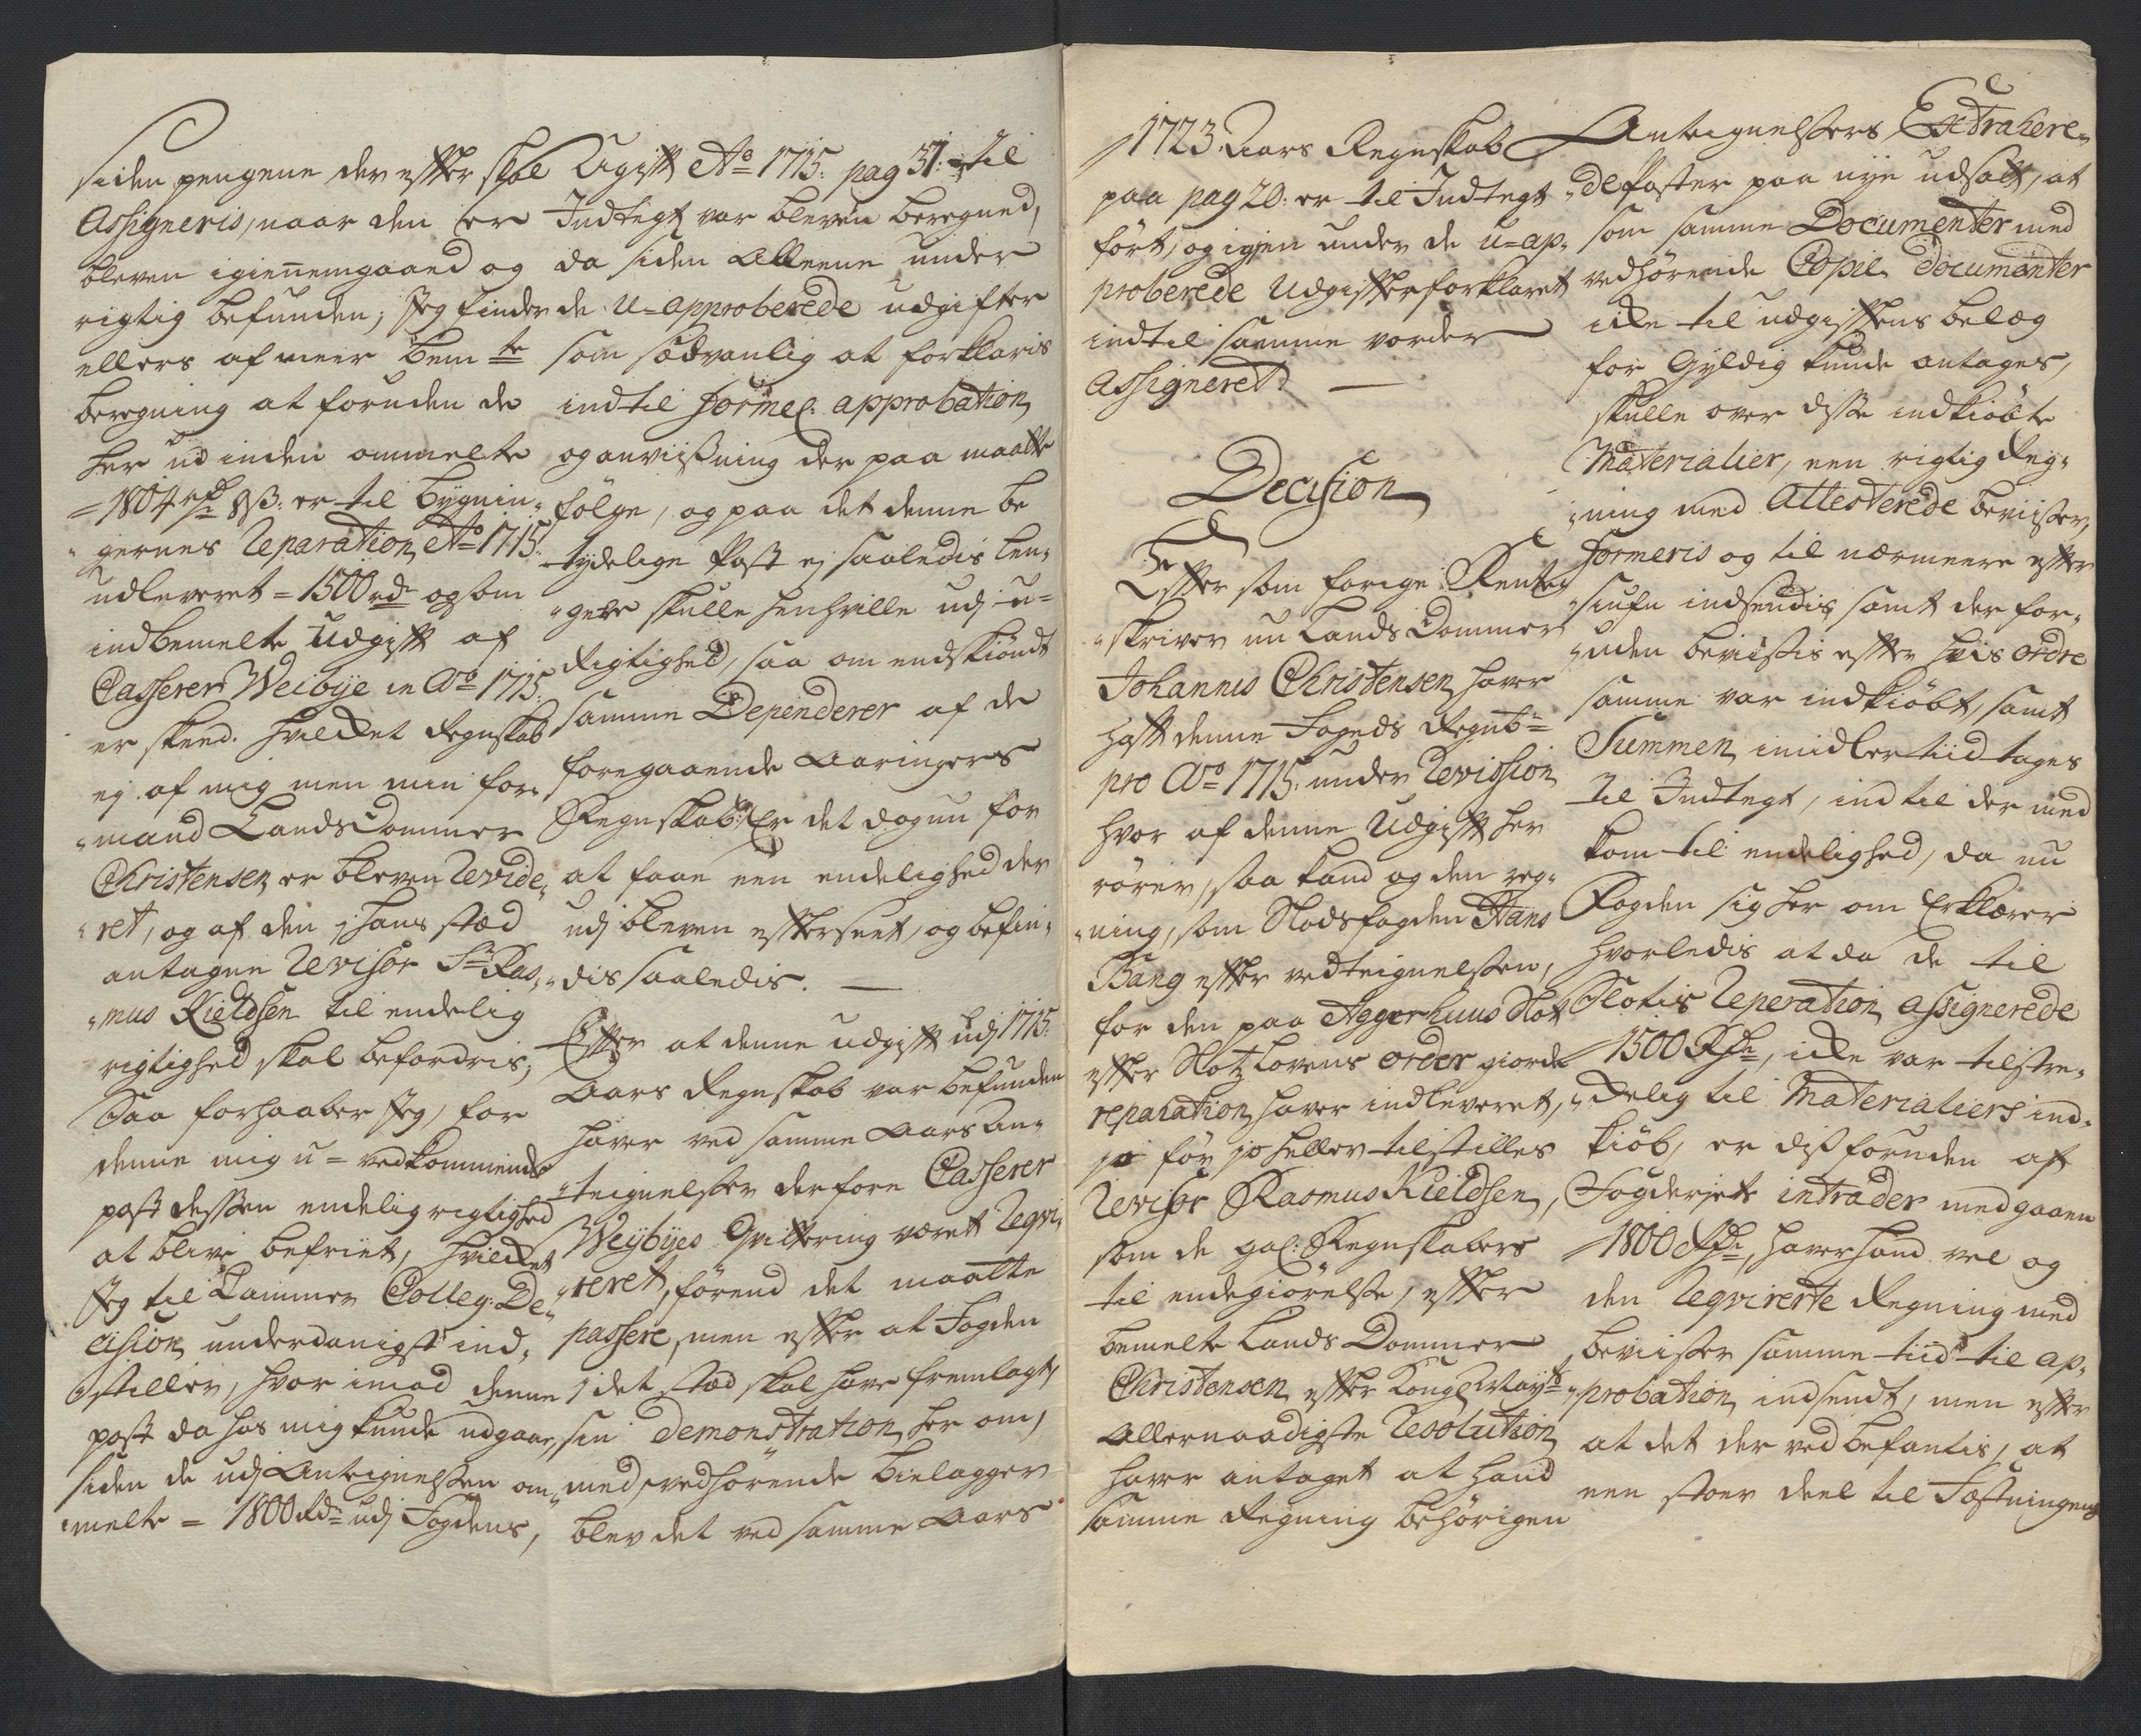 siden pengene der effter skal
Assigneris, naar den er
bleven igiennemgaaed og
rigtig befunden; Jeg finder
ellers af meer bemte
beregning at foruden de
her ud inden ommelte
= 1804 rdr 8 ß: er til bÿgnin-
gernes Reparation Ao 1715:
udleveret = 1500 rdr og som
indbemelte Udgifft af
Casserer Weibÿe in Ao 1715:
er skeed. hvilcket Regnskab
ej af mig men min for-
mand LandsDommer
Christensen er bleven Revide-
ret, og af den j hans stæd
antagne Revisor Sr Ras-
mus Kieldsen til endelig
rigtighed skal befordris;
Saa forhaaber Jeg, for
denne mig u-vedkommende
post dessen endelig rigtighed
at blive befriet, hvilcket
Jeg til Cammer Colleg: De-
cision underdanigst ind-
stiller, hvor imod denne
post da hos mig kunde udgaae,
siden de udj Antegnelsen om-
melte = 1800 Rdr udj Fogdens,
Udgifft Ao 1715: pag 31: til
Indtegt var bleven beregned,
da siden Alleene under
de U-approberede udgifter
som sædvanlig at forklaris
indtil formel: approbation
og anviisning der paa maatte
følge, og paa det denne be
tÿdelige Post ej saaledis len-
gere skulle henhville udj u-
Rigtighed, saa om endskiøndt
samme Dependerer af de
foregaaende Aaringers
Regnskab: Er det dog nu for
at faae een endelighed der
udj bleven efterseet, og befin-
dis saaledis. —
Effter at denne udgifft udj 1715:
Aars Regnskab var befunden
haver ved samme Aars An-
tegnelser derfore Casserer
Weÿbÿes Qvittering været Reqvi-
reret, førend det maatte
passere, men effter at Fogden
j det stæd skal have fremlagt,
sin Demonstration her om,
med vedhørende bielagger
blev det ved samme Aars
1723: Aars Regnskab
paa pag 20: er til Indtegt
ført, og igien under de u-ap-
proberede Udgiffter forklaret
indtil samme vorder
Assigneret —
Decision
Effter som forige Rente-
skriver nu LandsDommer
Johannes Christensen haver
hafft denne Fogeds Regnb-
pro Ao 1715: under Revision
hvor af denne Udgifft her
rører, saa kand og den reg-
ning, som Slodsfogden Hans
Bang effter vedtegnelsen,
for den paa Aggerhuus Slot
effter Slotz Lovens order giorde
reparation haver indleveret,
jo før jo heller tilstilles
Revisor Rasmus Kieldsen,
som de gal: Regnskabers
til endegiørelse, effter
bemelte Lands Dommer
Christensen effter Kongl Mayts
Allernaadigste Resolution
haver antaget at hand
samme Regning behørigen
Antegnelsers Extrahere-
de Poster paa nÿe udsatt, at
som samme Documenter med
vedhørende Copie Documenter
icke til udgifftens belæg
for Gÿldig kunde antages,
skulle over disse indkiøbte
Materialier, een rigtig Reg-
ning med Attesterede beviiser,
formeris og til nærmere effter
siufn indsendis samt der for-
uden beviisis effter hvis ordre
samme var indkiøbt, samt
Summen imidlertiid tages
til Indtegt, indtil der med
kom til endelighed, da nu
Fogden sig her om Erklærer
hvorledis at da de til
Slotis Reperation assignerede
1500 Rdr, icke var tilstre-
ckelig til Materialiers ind-
kiøb, er diss foruden af
Fogderjets intrader medgaaen
1800 Rdr, haver hand vel og
den Reqvirerte Regning med
beviiser samme tiid til ap-
probation indsendt, men effter
at det der ved befantis, at
een stoer deel til Fæstningens